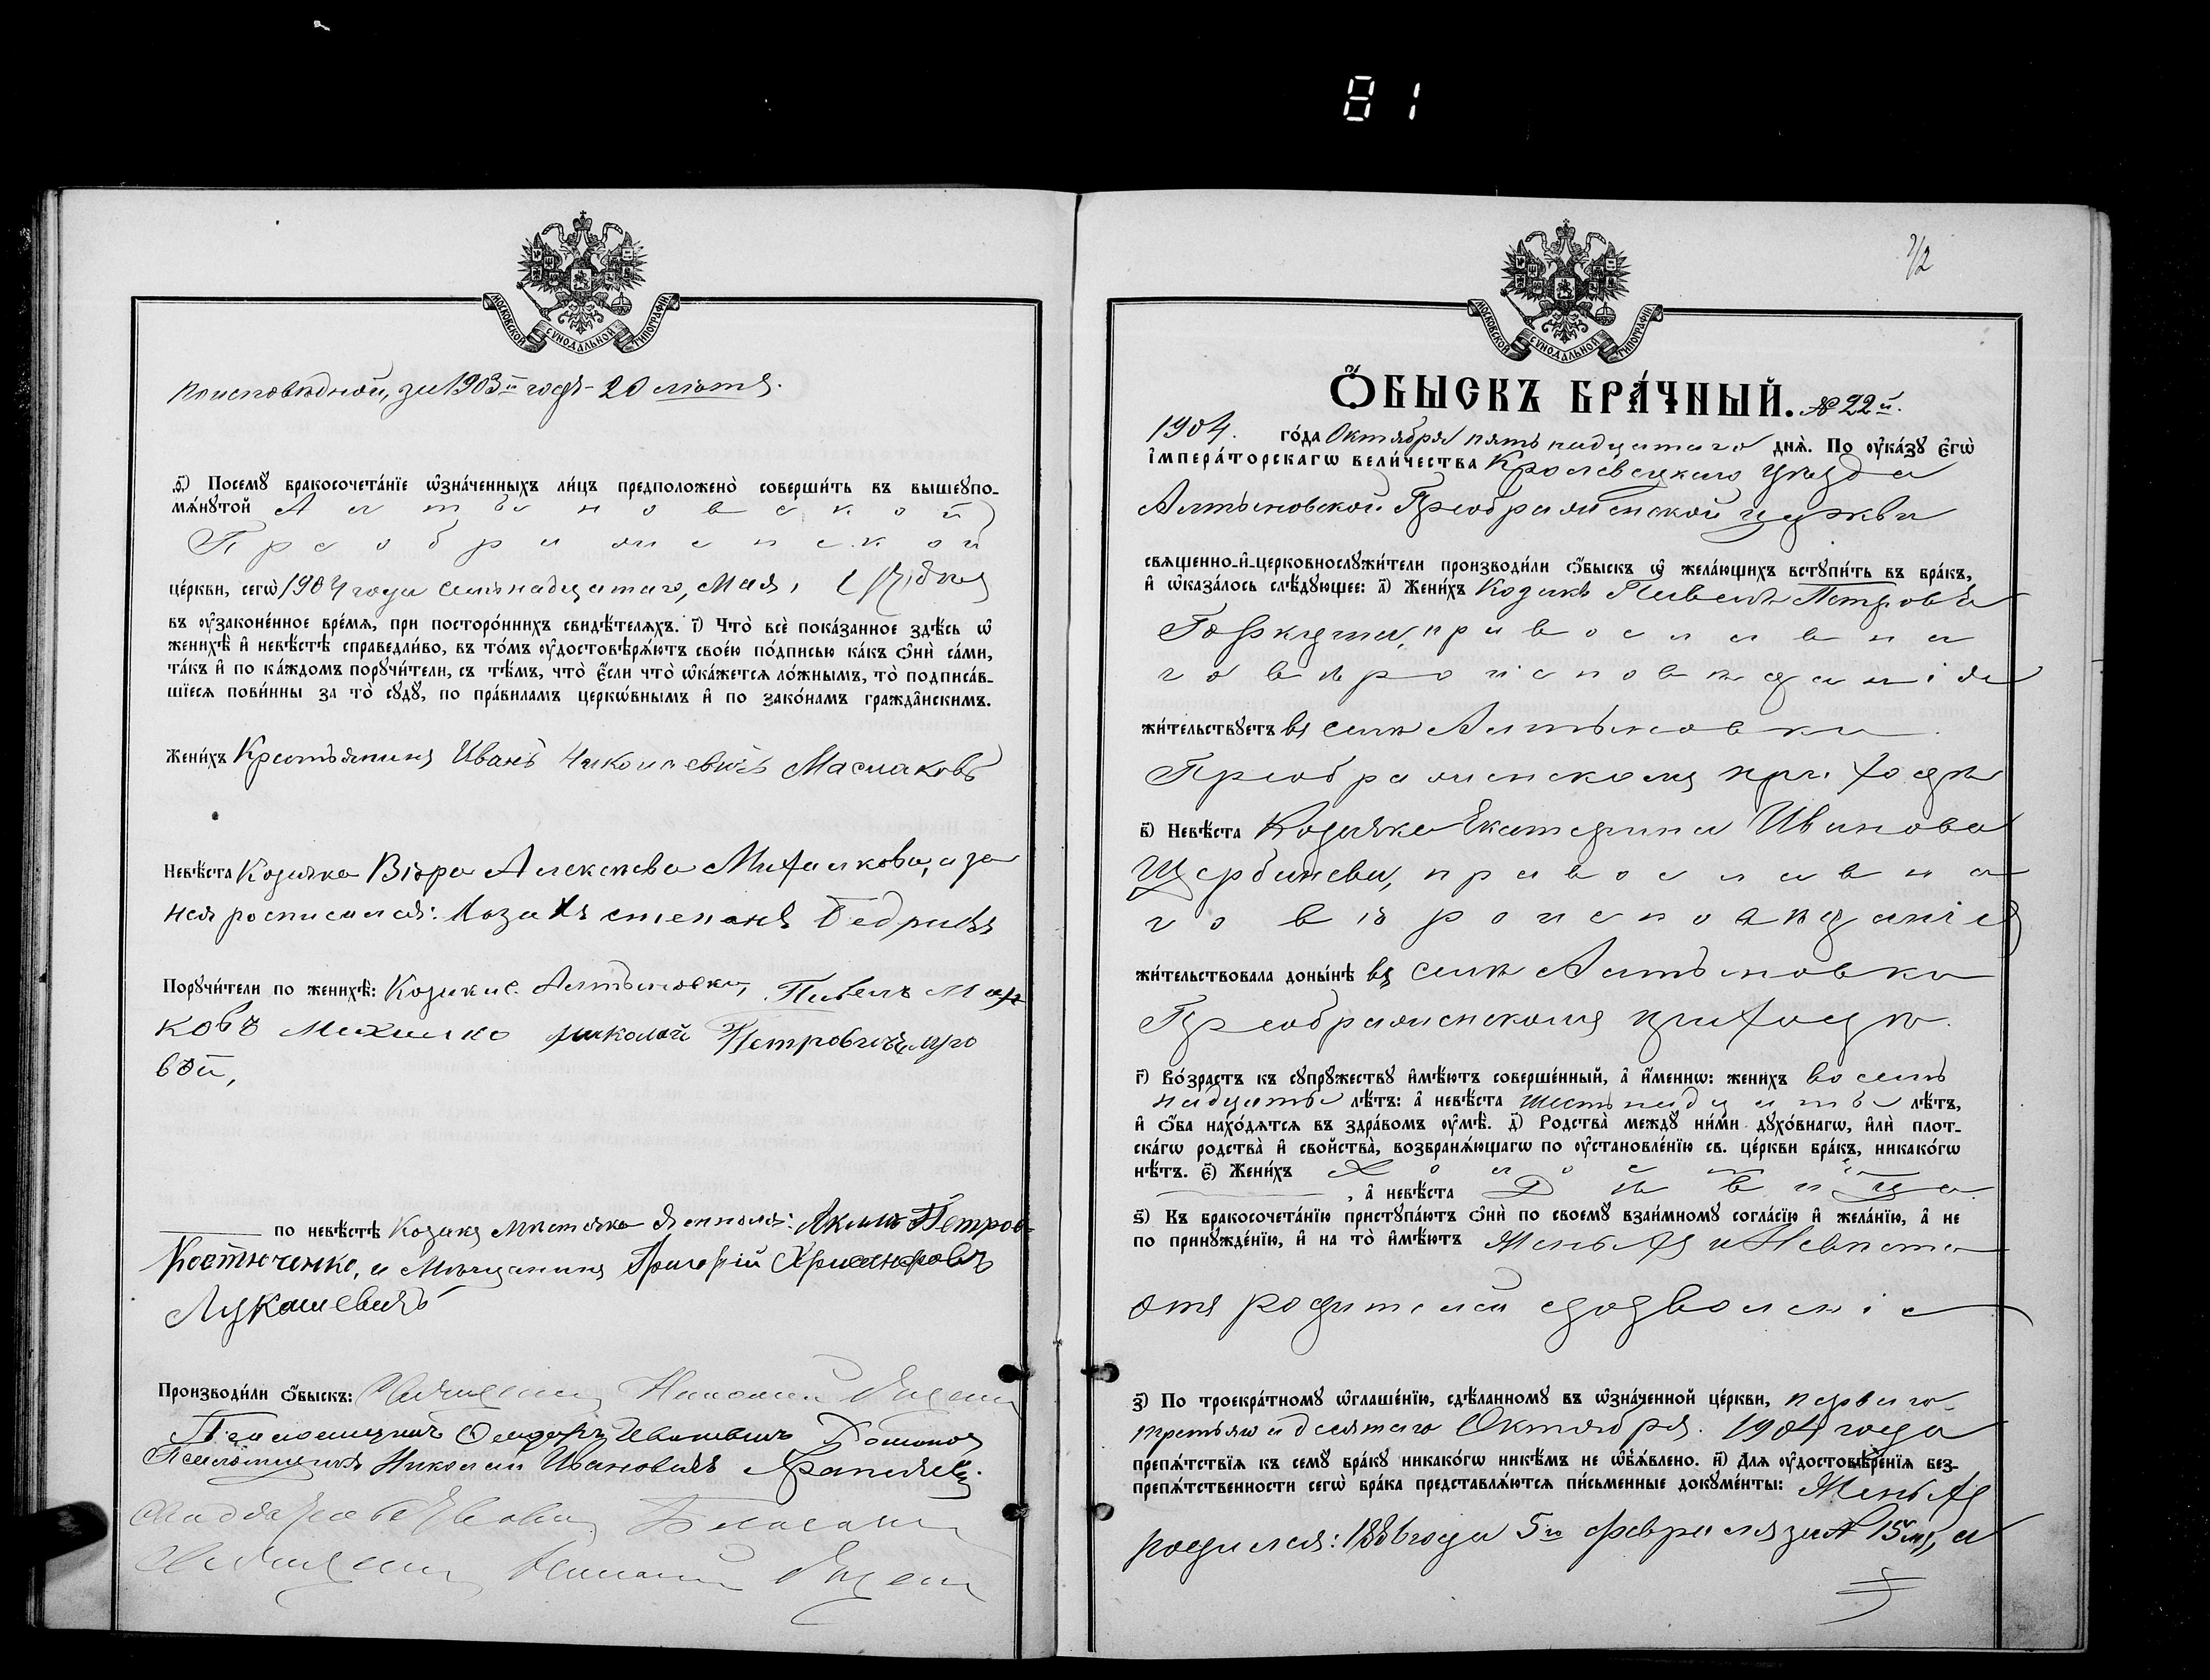 81
МОСКОВСКОЙ СѴНОДАЛЬНОЙ ТИПОГРАФІИ
поисповѣдной, за 1903й годъ - 20 лѣтъ.
ѳ҃) Посемꙋ̀ бракосочета́нїе ѡ҆зна́ченныхъ ли́цъ предположено̀ соверши́ть въ вышеꙋпо-
мѧ́нꙋтой Алтыновской
Преображенской
це́ркви, сегѡ̀ 1904 года семьнадцатаго, Мая, дня
въ ᲂу҆зако́ненное вре́мѧ, при посторо́ннихъ свидѣ́телѧхъ. і҃) Что̀ всѐ пока́занное здѣ́сь ѡ҆
женихѣ̀ и҆ невѣ́стѣ справедли́во, въ то́мъ ᲂу҆достовѣрѧ́ютъ свое́ю по́дписью ка́къ ѻ҆нѝ са́ми,
та́къ и҆ по ка́ждомъ порꙋчи́тели, съ тѣ́мъ, что̀ є҆́сли что̀ ѡ҆ка́жетсѧ ло́жнымъ, то̀ подписа́в-
шїесѧ пови́нны за то̀ сꙋдꙋ̀, по пра́виламъ церкѡ́внымъ и҆ по зако́намъ гражда̑нскимъ.
Жени́хъ Крестьянинъ Иванъ Николаевичъ Маслаковъ
Невѣ́ста Козачка Вѣра Алексѣева Михалкова, а за
нея росписался: Козакъ степанъ Бедрикъ
Порꙋчи́тели по женихѣ̀: Козаки с. Алтыновки, Павелъ Мар
ковъ Михалко николай Петровичъ
вой,
по невѣ́стѣ Козакъ мистечка Ямполя: Акимъ Петров
Костюченко, и Мѣщанинъ Григорій Хрисанфовъ
Лукашевичъ
Производи́ли ѻ҆́быскъ: Священникъ Николай
Псаломщикъ Ѳеодоръ Ивановичъ
Псаломщикъ Николай Ивановичъ
Священникъ Николай
72
МОСКОВСКОЙ СѴНОДАЛЬНОЙ ТИПОГРАФІИ
Ѻ҆́БЫСКЪ БРА́ЧНЫЙ. № 22й.
1904. го́да Октября пятьнадцатаго днѧ̀. По ᲂу҆ка́зꙋ Є҆гѡ̀
І҆мпера́торскагѡ вели́чества Кролевецкаго уѣзда
Алтыновской Преображенской церкви
свѧщенно-и҆-церковнослꙋжи́тели производи́ли ѻ҆́быскъ ѡ҆ жела́ющихъ встꙋпи́ть въ бра́къ,
и҆ ѡ҆каза́лось слѣ́дꙋющее: а҃) Жени́хъ Козакъ Павелъ Петровъ
Горкуша, православна
го вѣроисповѣданія
жи́тельствꙋетъ въ селѣ Алтыновки
Преображенскомъ приходѣ
в҃) Невѣ́ста Козачка Екатерина Иванова
Щербинева, православна
го вѣроисповѣданія
жи́тельствовала доны́нѣ въ селѣ Алтыновки
Преображенскомъ приходѣ.
г҃) Во́зрастъ къ сꙋпрꙋ́жествꙋ и҆мѣ́ютъ соверше́нный, а҆ и҆́меннѡ: жени́хъ восемь
надцать лѣ́тъ: а҆ невѣ́ста шестьнадцать лѣ́тъ,
и҆ ѻ҆́ба нахо́дѧтсѧ въ здра́вомъ ᲂу҆мѣ̀. д҃) Родства̀ междꙋ̀ ни́ми дꙋхо́внагѡ, и҆лѝ плот-
ска́гѡ родства̀ и҆ сво́йства̀, возбранѧ́ющагѡ по ᲂу҆становле́нїю св. це́ркви бра́къ, никако́гѡ
нѣ́тъ. є҃) Жени́хъ холостъ
, а҆ невѣ́ста Дѣвица.
ѕ҃) Къ бракосочета́нїю пристꙋпа́ютъ ѻ҆нѝ по своемꙋ̀ взаи́мномꙋ согла́сїю и҆ жела́нїю, а҆ не
по принꙋжде́нїю, и҆ на то̀ и҆мѣ́ютъ Женыхъ и Невѣста
отъ родителей дозволеніе
з҃) По троекра́тномꙋ ѡ҆глаше́нїю, сдѣ́ланномꙋ въ ѡ҆зна́ченной це́ркви, перваго
третьяго и десятаго Октября. 1904 года
препѧ́тствїѧ къ семꙋ̀ бра́кꙋ никако́гѡ никѣ́мъ не ѡ҆б̾ѧ́влено. и҃) Длѧ̀ ᲂу҆достовѣре́нїѧ без-
препѧ́тственности сегѡ̀ бра́ка представлѧ́ютсѧ пи́сьменные докꙋме́нты: Женыхъ
родился: 1886 года 5го февраля за № 15мъ, а